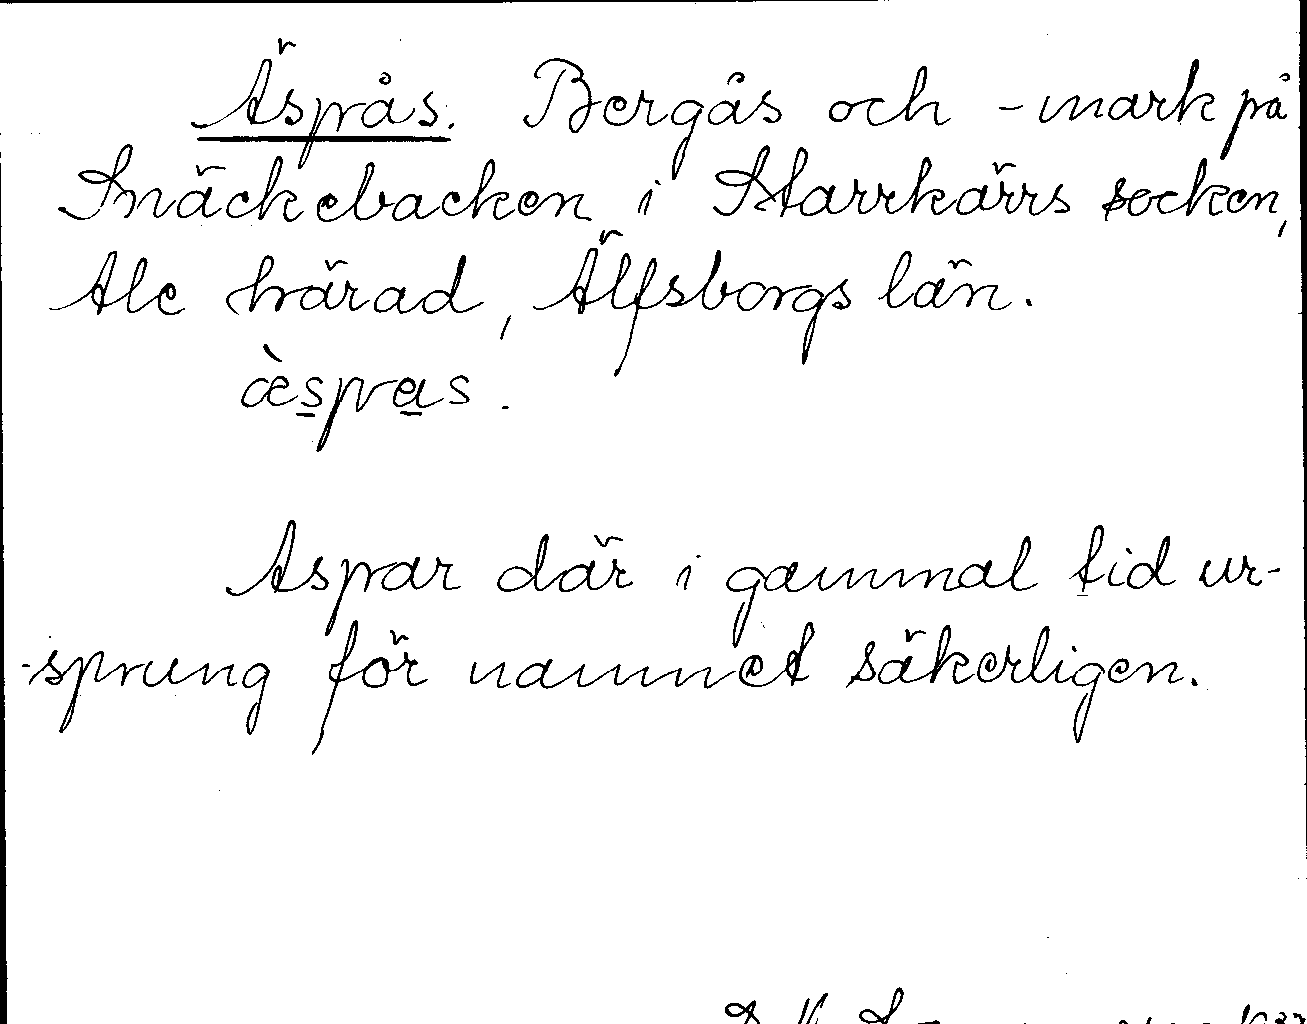 Äsprås. Bergås och -mark på
Snäckebacken i Starrkärrs socken,
Ale härad, Älfsborgs län.
æ̀spras.
Aspar där i gammal tid ur-
-sprung för namnet säkerligen.